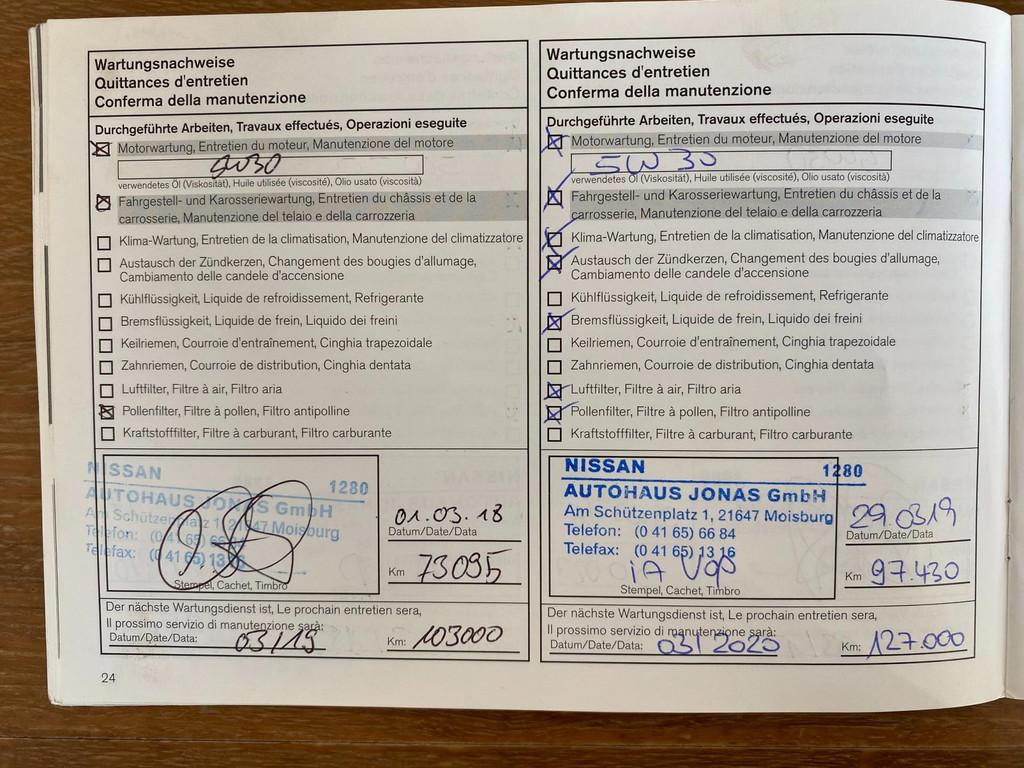 Wartungsnachweise
Quittances d'entretien
Conferma della manutenzione
Durchgeführte Arbeiten, Travaux effectués, Operazioni eseguite
Motorwartung, Entretien du moteur, Manutenzione del motore
5W30
verwendetes Öl (Viskosität), Huile utilisée (viscosité), Olio usato (viscosità)
Fahrgestell- und Karosseriewartung, Entretien du châssis et de la
carrosserie, Manutenzione del telaio e della carrozzeria
Klima-Wartung, Entretien de la climatisation, Manutenzione del climatizzatore
Austausch der Zündkerzen, Changement des bougies d'allumage,
Cambiamento delle candele d'accensione
Kühlflüssigkeit, Liquide de refroidissement, Refrigerante
Bremsflüssigkeit, Liquide de frein, Liquido dei freini
Keilriemen, Courroie d'entraînement, Cinghia trapezoidale
Zahnriemen, Courroie de distribution, Cinghia dentata
Luftfilter, Filtre à air, Filtro aria
Pollenfilter, Filtre à pollen, Filtro antipolline
Kraftstofffilter, Filtre à carburant, Filtro carburante
NISSAN 1280
AUTOHAUS JONAS GmbH
Am Schützenplatz 1, 21647 Moisburg
Telefon: (0 41 65) 66 84
Telefax: (0 41 65) 13 16
Stempel, Cachet, Timbro
01.03.18
Datum/Date/Data
Km 73095
Der nächste Wartungsdienst ist, Le prochain entretien sera,
Il prossimo servizio di manutenzione sarà:
Datum/Date/Data: 03/19 Km: 103000
24
Wartungsnachweise
Quittances d'entretien
Conferma della manutenzione
Durchgeführte Arbeiten, Travaux effectués, Operazioni eseguite
Motorwartung, Entretien du moteur, Manutenzione del motore
5W30
verwendetes Öl (Viskosität), Huile utilisée (viscosité), Olio usato (viscosità)
Fahrgestell- und Karosseriewartung, Entretien du châssis et de la
carrosserie, Manutenzione del telaio e della carrozzeria
Klima-Wartung, Entretien de la climatisation, Manutenzione del climatizzatore
Austausch der Zündkerzen, Changement des bougies d'allumage,
Cambiamento delle candele d'accensione
Kühlflüssigkeit, Liquide de refroidissement, Refrigerante
Bremsflüssigkeit, Liquide de frein, Liquido dei freini
Keilriemen, Courroie d'entraînement, Cinghia trapezoidale
Zahnriemen, Courroie de distribution, Cinghia dentata
Luftfilter, Filtre à air, Filtro aria
Pollenfilter, Filtre à pollen, Filtro antipolline
Kraftstofffilter, Filtre à carburant, Filtro carburante
NISSAN 1280
AUTOHAUS JONAS GmbH
Am Schützenplatz 1, 21647 Moisburg
Telefon: (0 41 65) 66 84
Telefax: (0 41 65) 13 16
iA
Stempel, Cachet, Timbro
29.0319
Datum/Date/Data
Km 97.430
Der nächste Wartungsdienst ist, Le prochain entretien sera,
Il prossimo servizio di manutenzione sarà:
Datum/Date/Data: 03/2020 Km: 127.000